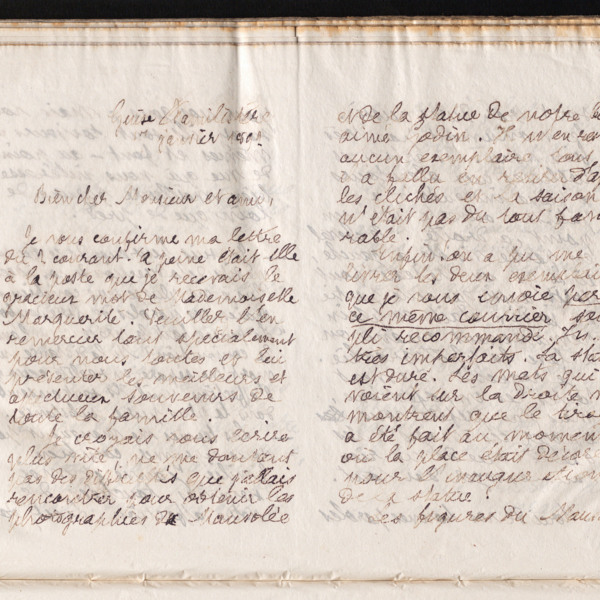 Guise Familistère
janvier 190
Bien cher Monsieur et ami,
Je vous confirme ma lettre
du 2 courant. A peine était-elle
à la poste que je recevais le
gracieux mot de Mademoiselle
Marguerite. Veuillez l'en
remercier tout spécialement
pour nous toutes et lui
présenter les meilleurs et
affectueux souvenirs de
toute la famille.
Je croyais vous écrire
plus vite, ne me doutant
pas des difficultés que j'allais
rencontrer pour obtenir les
photographies du Mausolée
et de la statue de notre
aimé Godin. Il n'en
aucun exemplaire tout
a fallu en
les clichés et la saison
n'était pas du tout favo
rable.
Enfin! on a pu me
livrer les deux
que je vous envoie par
ce même courrier
pli recommandé.
très imparfaits. La
est dure. Les mâts qui
voient sur la droite
montrent que le
a été fait au moment
où la place était décorée
pour l'inauguration
de la statue.
Les figures du